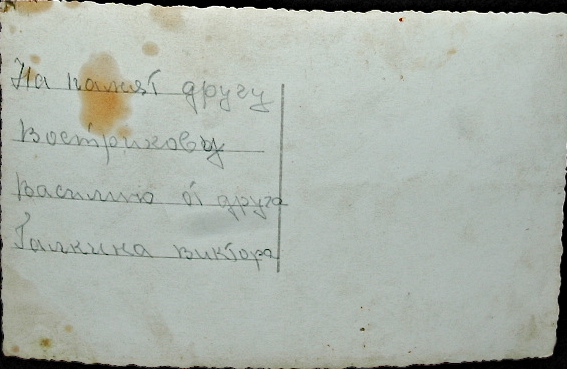 На памят другу
Вострикову
Василию от друга
Галкина виктора